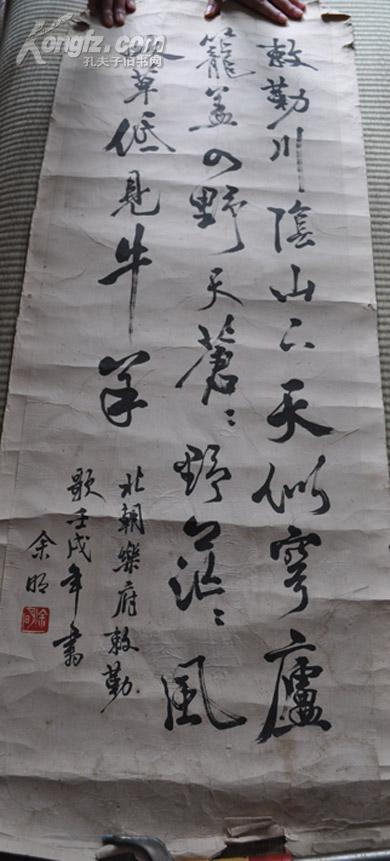 敕勒川陰山下天似穹廬
籠蓋四野天蒼〻野茫〻風
吹草低見牛羊
北朝樂府敕勒
歌壬戌年書
余明
Kongfz.com
孔夫子旧书网